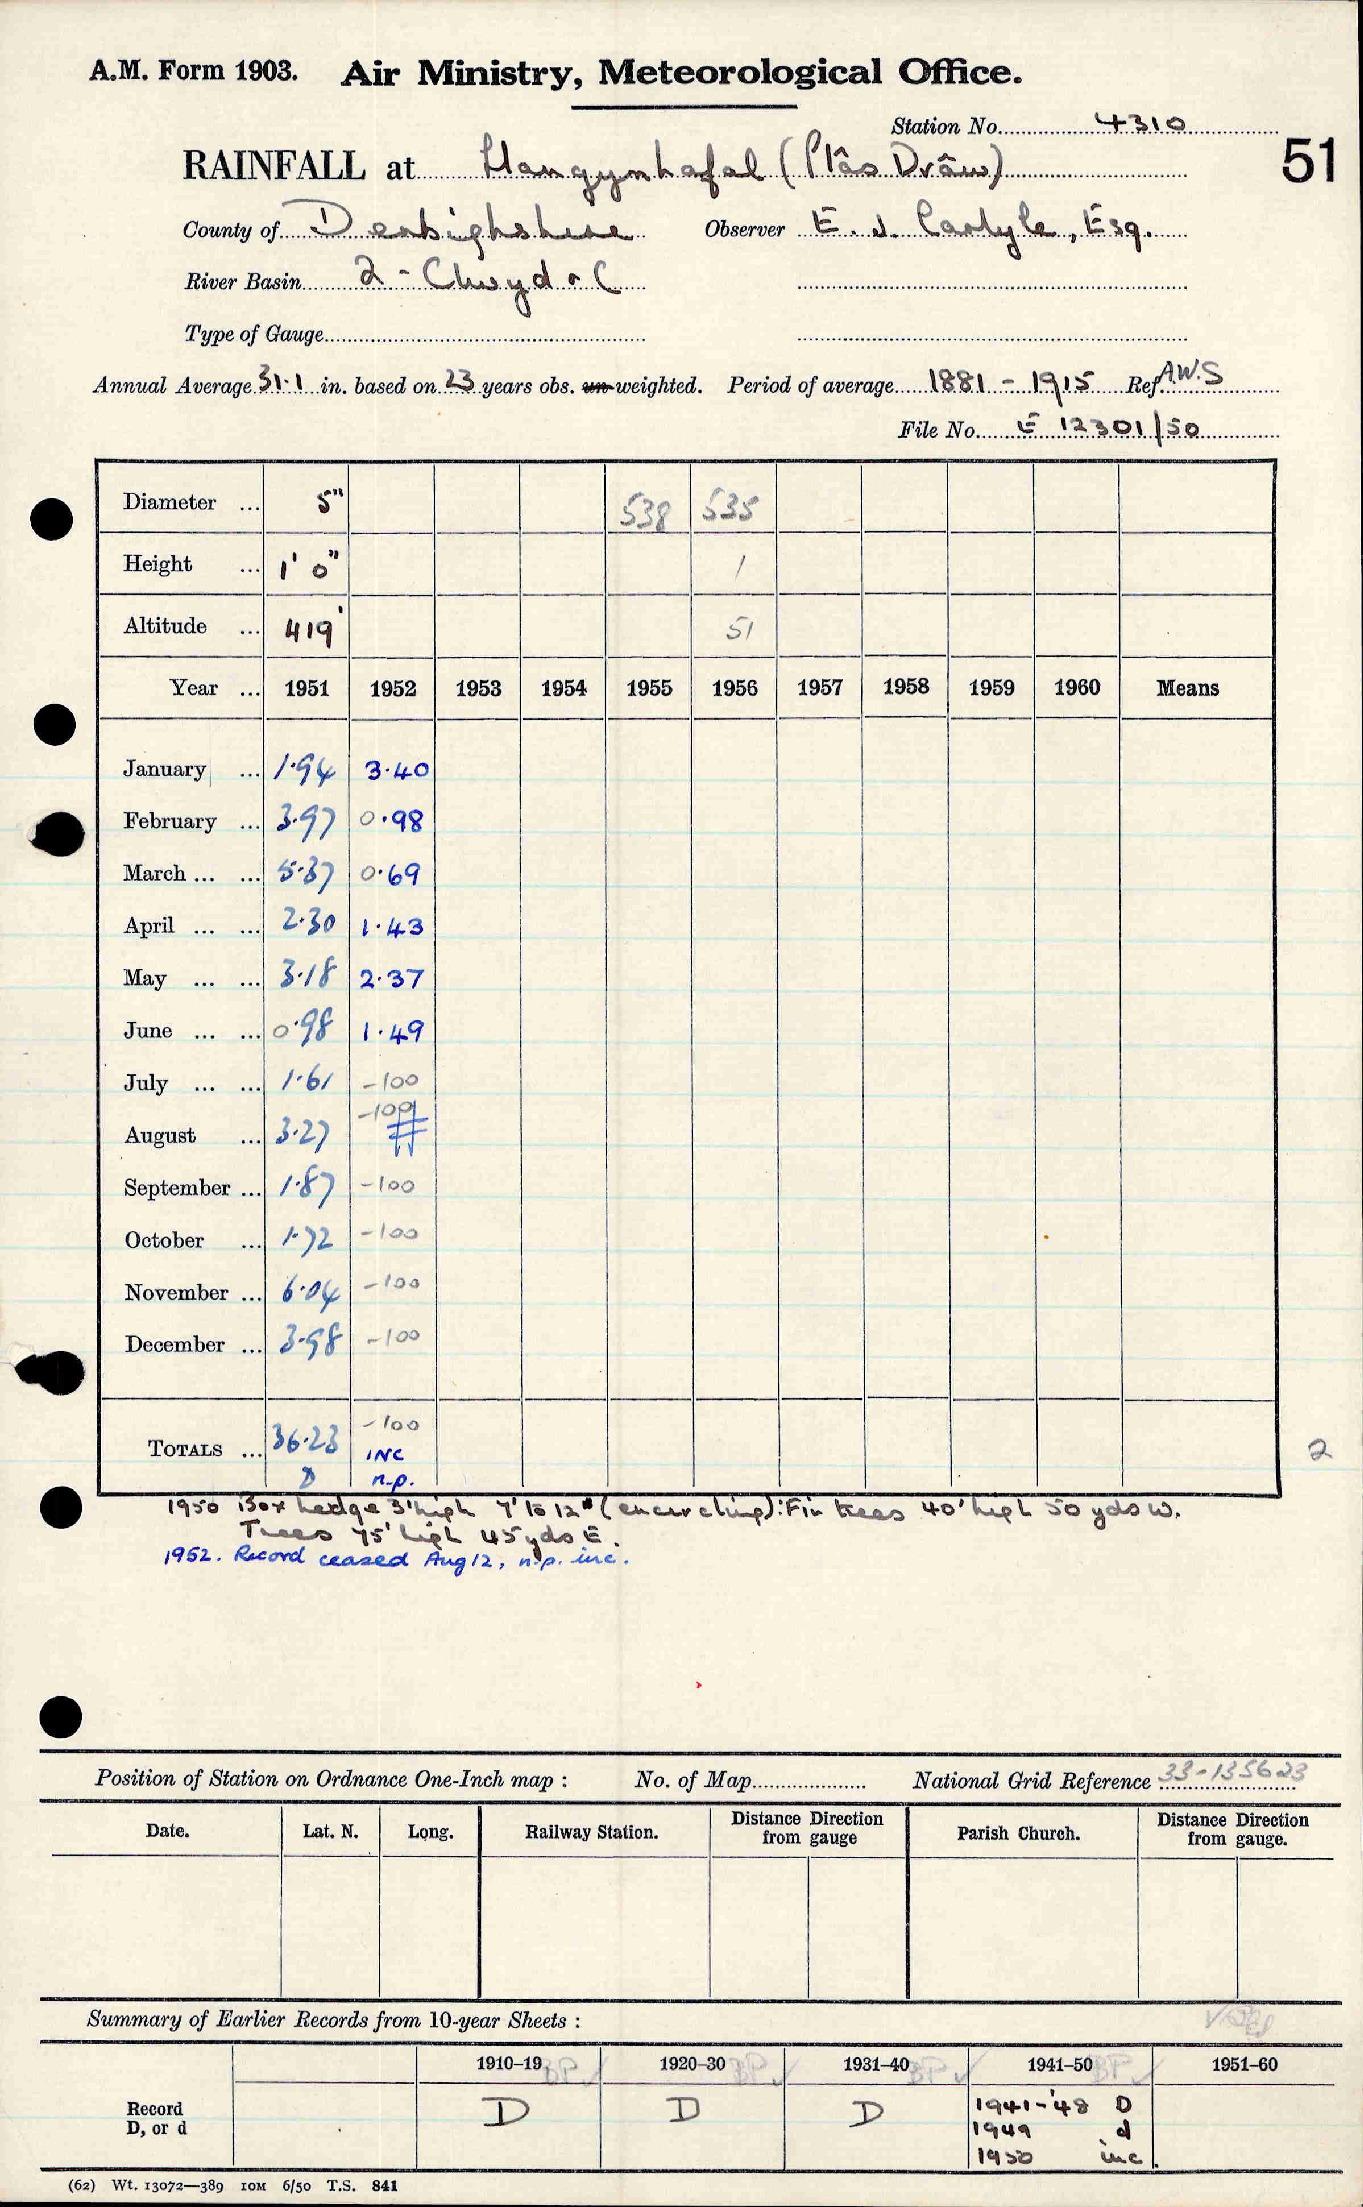 A.M. Form 1903. Air Ministry, Meteorological Office.
Station No. 4310
RAINFALL at Llangynhafal (Plâs Drâw)
51
County of Denbighshire Observer E. J. Carlyle, Esq.
River Basin 2 - Clwyd & C
Type of Gauge
Annual Average 31.1 in. based on 23 years obs. un-weighted. Period of average 1881 - 1915 Ref. A.W.S
File No. E 12301/50
Diameter ... 5" 538 535
Height ... 1' 0" 1
Altitude ... 419' 51
Year ... 1951 1952 1953 1954 1955 1956 1957 1958 1959 1960 Means
January ... 1.94 3.40
February ... 3.97 0.98
March ... ... 5.37 0.69
April ... ... 2.30 1.43
May ... ... 3.18 2.37
June ... ... 0.98 1.49
July ... ... 1.61 -100
August ... 3.27 -100
September ... 1.87 -100
October ... 1.72 -100
November ... 6.04 -100
December ... 3.98 -100
TOTALS ... 36.23 -100
D INC
n.p.
2
1950 Box hedge 3' high 7' to 12" (encircling): Fir trees 40' high 50 yds W.
Trees 75' high 45 yds E.
1952. Record ceased Aug 12, n.p. inc.
Position of Station on Ordnance One-Inch map : No. of Map National Grid Reference 33-135623
Date. Lat. N. Long. Railway Station. Distance Direction from gauge Parish Church. Distance Direction from gauge.
Summary of Earlier Records from 10-year Sheets :
1910–19 BP ✓ 1920–30 BP ✓ 1931–40 BP ✓ 1941–50 BP ✓ 1951–60
Record D, or d D D D 1941-'48 D
1949 d
1950 inc.
(62) Wt. 13072—389 10M 6/50 T.S. 841